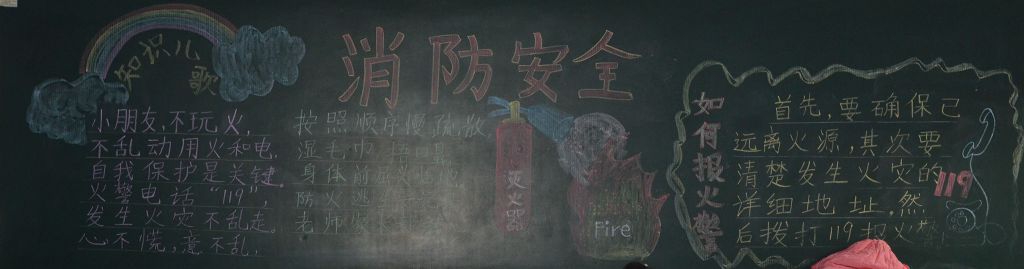 消防安全
知识儿歌
小朋友,不玩火,
不乱动用火和电.
自我保护是关键.
火警电话“119”,
发生火灾不乱走.
心不慌,意不乱,
按照顺序慢疏散
湿毛巾捂口鼻
身体前屈
防火逃
老师家长
灭火器
Fire
如何报火警
首先,要确保己
远离火源,其次要
清楚发生火灾的
详细地址.然
后拨打119报火警
119